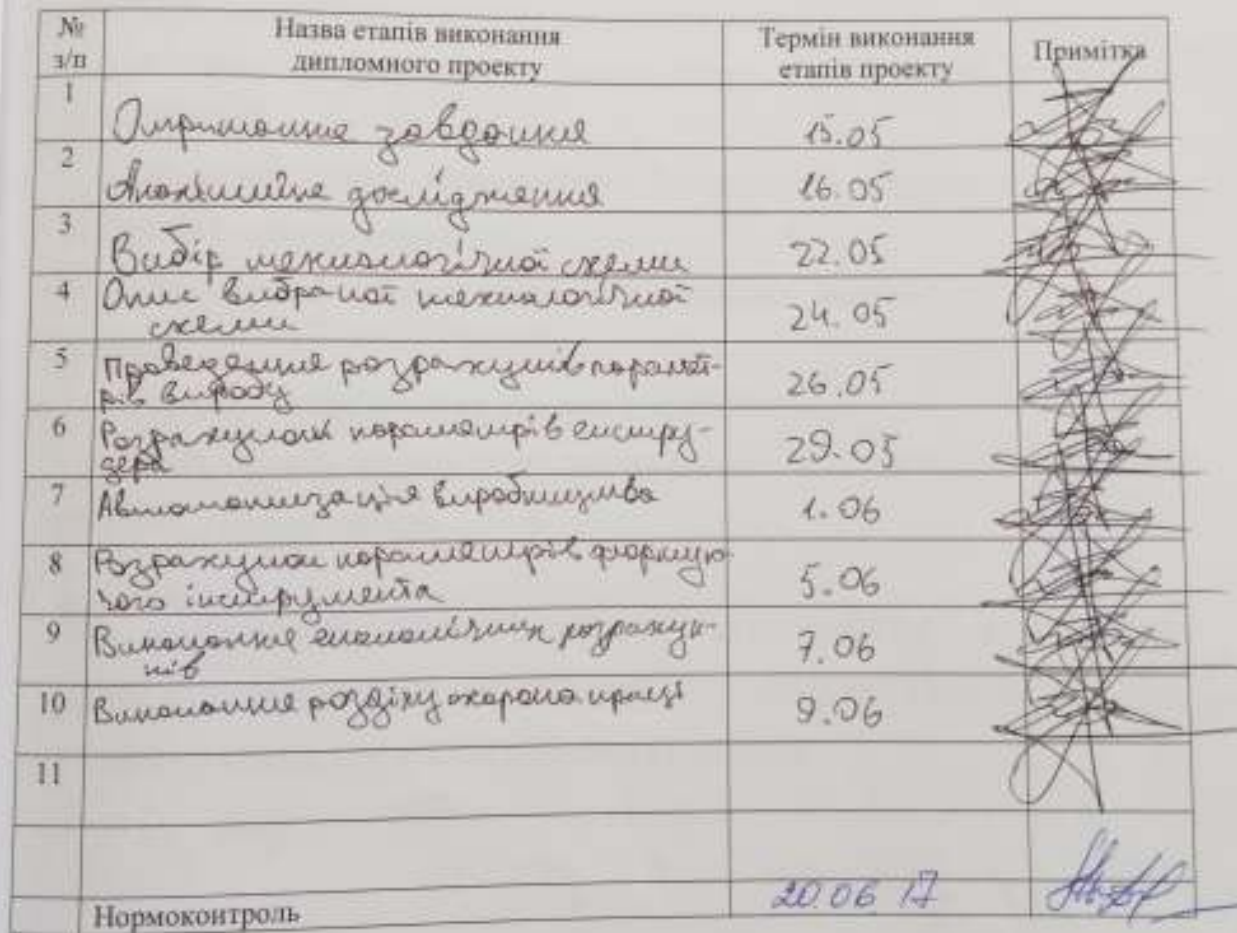 № з/п Назва етапів виконання дипломного проекту Термін виконання етапів проекту Примітка
1 Отримання завдання 15.05
2 Аналітичне дослідження 16.05
3 Вибір технологічної схеми 22.05
4 Опис вибраної технологічної 24.05
схеми
5 Проведення розрахунків парамет- 26.05
рів виробу
6 Розрахунок параметрів екстру- 29.05
дера
7 Автоматизація виробництва 1.06
8 Розрахунок параметрів формую- 5.06
чого інструмента
9 Виконання економічних розрахун- 7.06
ків
10 Виконання розділу охорона праці 9.06
11
Нормоконтроль 20.06 17